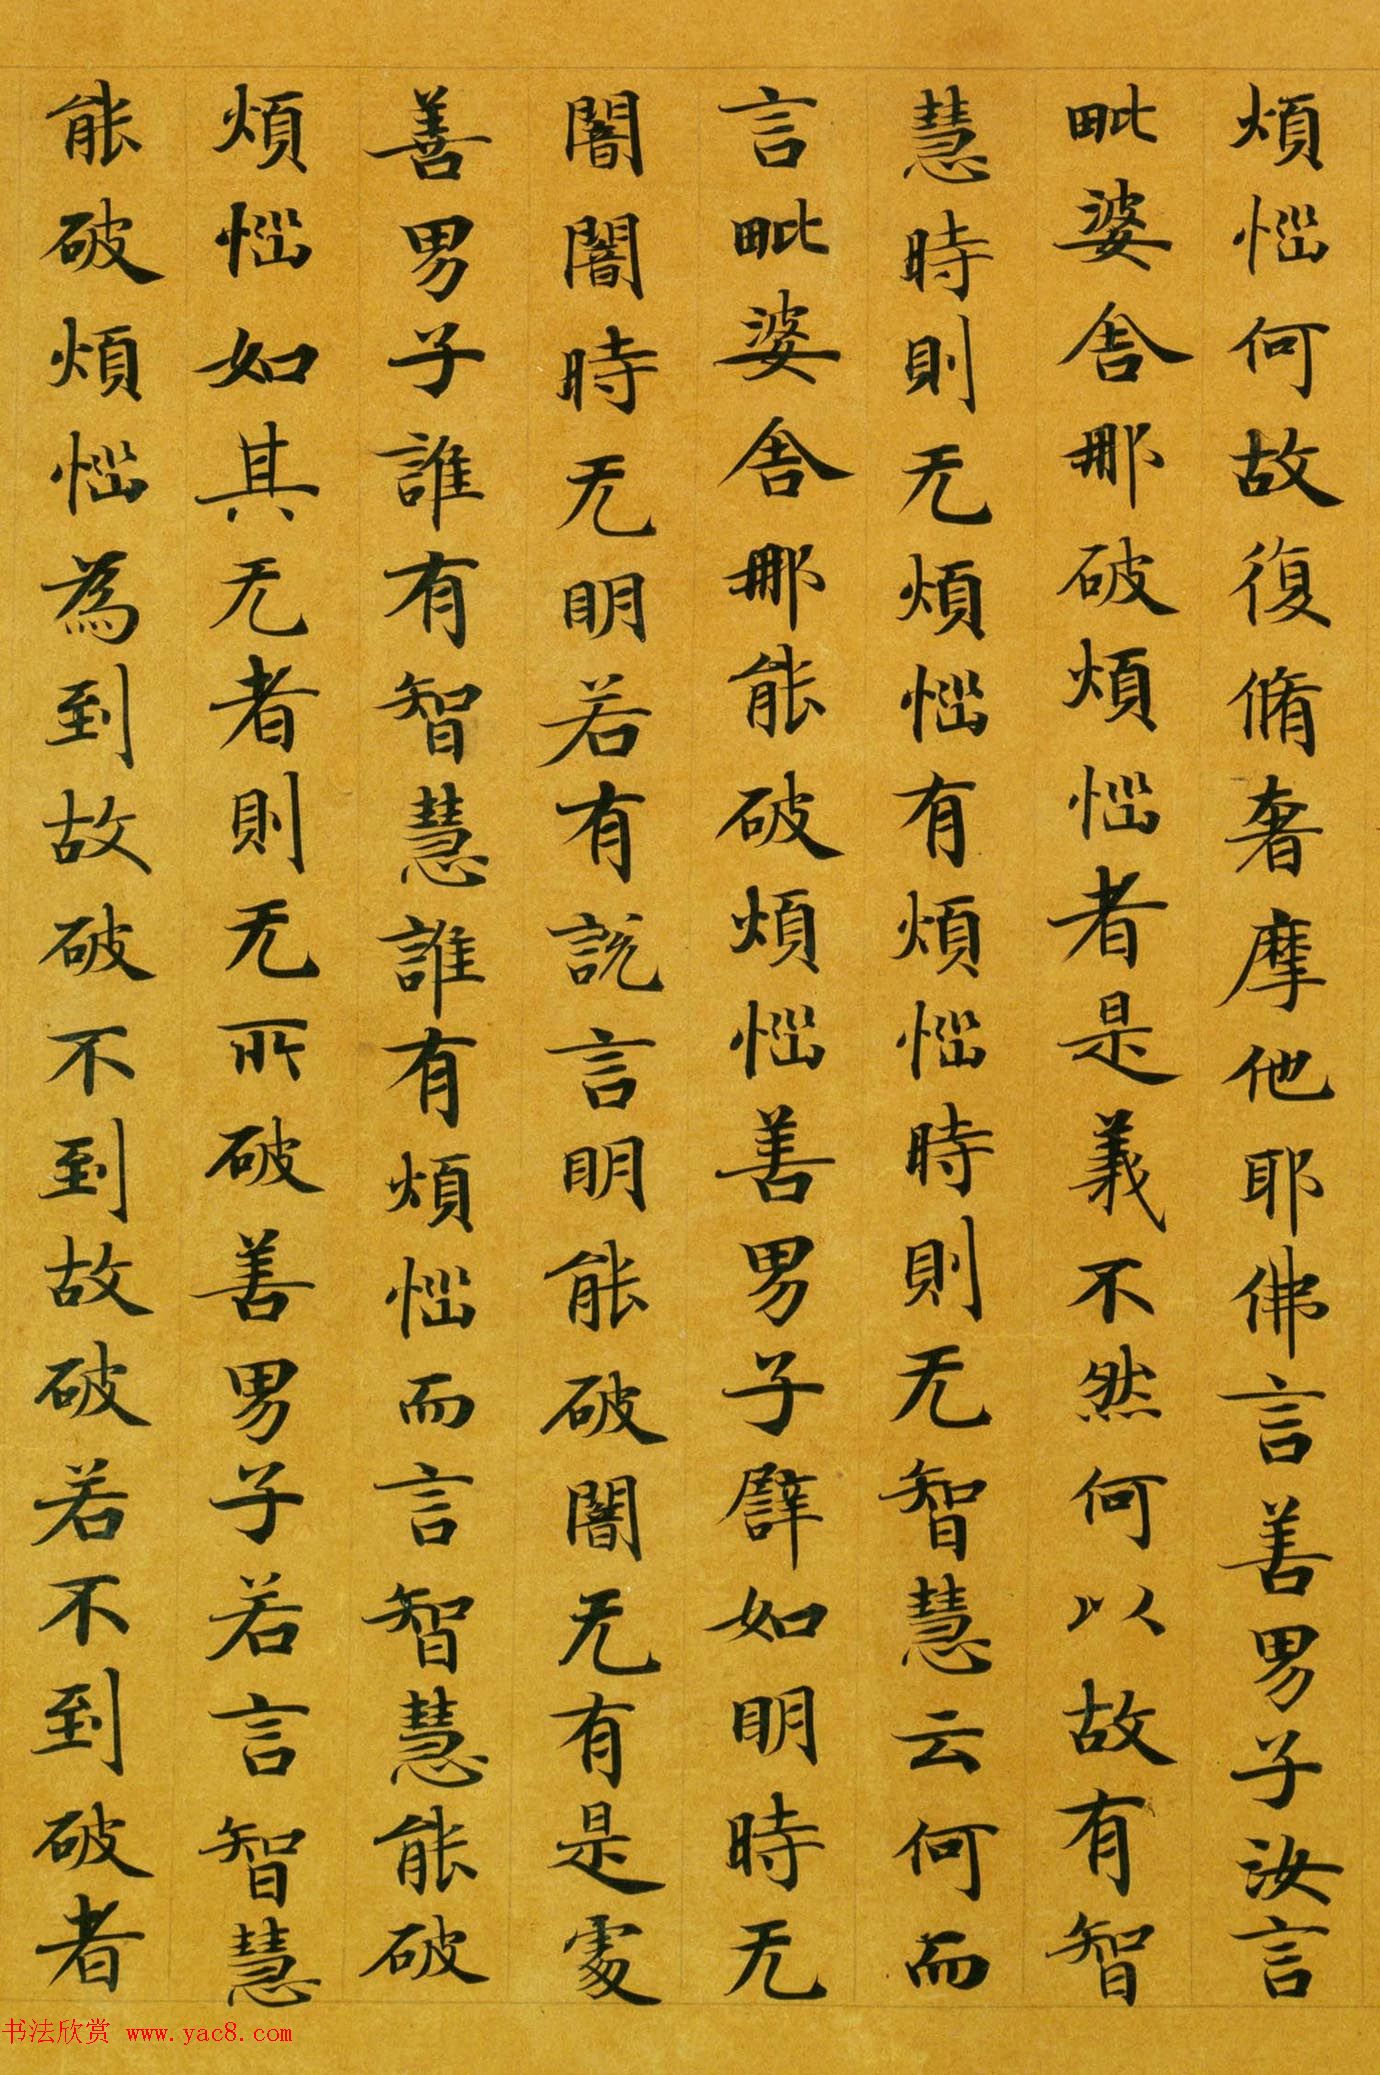 煩惱何故復脩奢摩他耶佛言善男子汝言
毗婆舍那破煩惱者是義不然何以故有智
慧時則无煩惱有煩惱時則无智慧云何而
言毗婆舍那能破煩惱善男子譬如明時无
闇闇時无明若有說言明能破闇无有是處
善男子誰有智慧誰有煩惱而言智慧能破
煩惱如其无者則无所破善男子若言智慧
能破煩惱為到故破不到故破若不到破者
书法欣赏 www.yac8.com